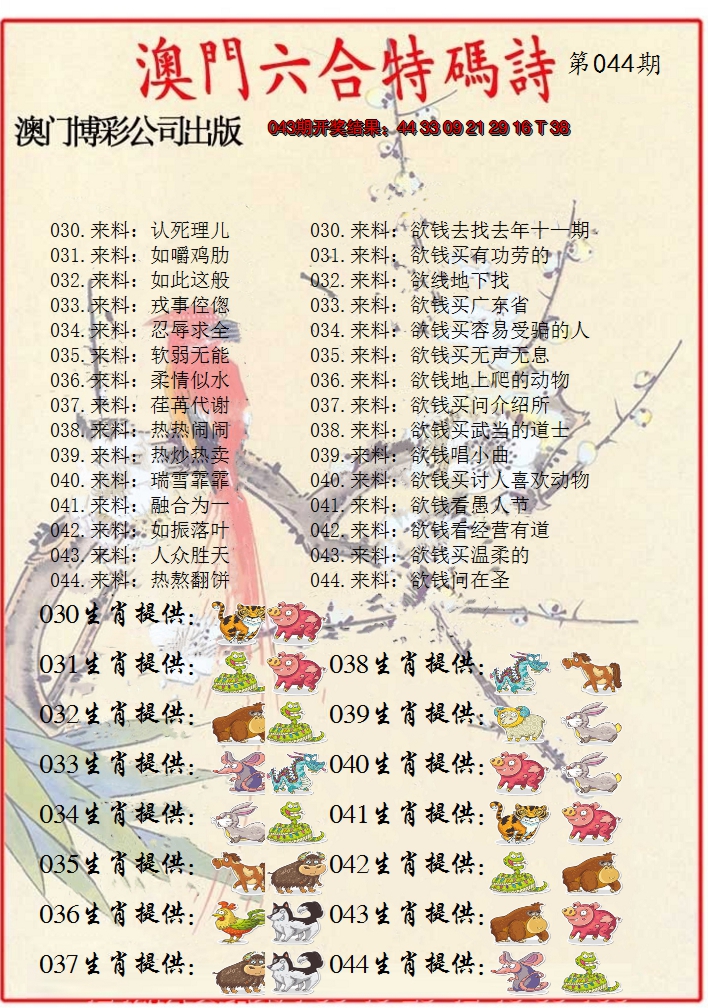 澳門六合特碼詩 第044期
澳门博彩公司出版 043期开奖结果：44 33 09 21 29 16 T 36
030.来料：认死理儿 030.来料：欲钱去找去年十一期
031.来料：如嚼鸡肋 031.来料：欲钱买有功劳的
032.来料：如此这般 032.来料：欲线地下找
033.来料：戎事倥偬 033.来料：欲钱买广东省
034.来料：忍辱求全 034.来料：欲钱买容易受骗的人
035.来料：软弱无能 035.来料：欲钱买无声无息
036.来料：柔情似水 036.来料：欲钱地上爬的动物
037.来料：荏苒代谢 037.来料：欲钱买问介绍所
038.来料：热热闹闹 038.来料：欲钱买武当的道士
039.来料：热炒热卖 039.来料：欲钱唱小曲
040.来料：瑞雪霏霏 040.来料：欲钱买讨人喜欢动物
041.来料：融合为一 041.来料：欲钱看愚人节
042.来料：如振落叶 042.来料：欲钱看经营有道
043.来料：人众胜天 043.来料：欲钱买温柔的
044.来料：热熬翻饼 044.来料：欲钱问在圣
030生肖提供：
031生肖提供： 038生肖提供：
032生肖提供： 039生肖提供：
033生肖提供： 040生肖提供：
034生肖提供： 041生肖提供：
035生肖提供： 042生肖提供：
036生肖提供： 043生肖提供：
037生肖提供： 044生肖提供：